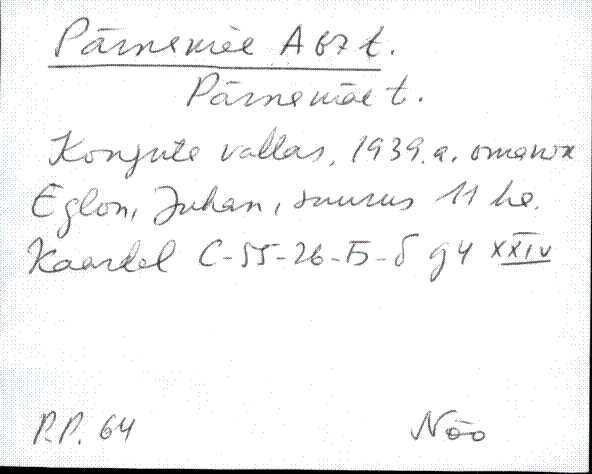 Pärnamäe A67 t.
Pärnamäe t.
Konguta vallas, 1939.a. omanik
Eglon, Juhan, suurus 11 ha.
Kaardil C-55-26-Б-б g4 XXIV
P.P. 64 Nõo